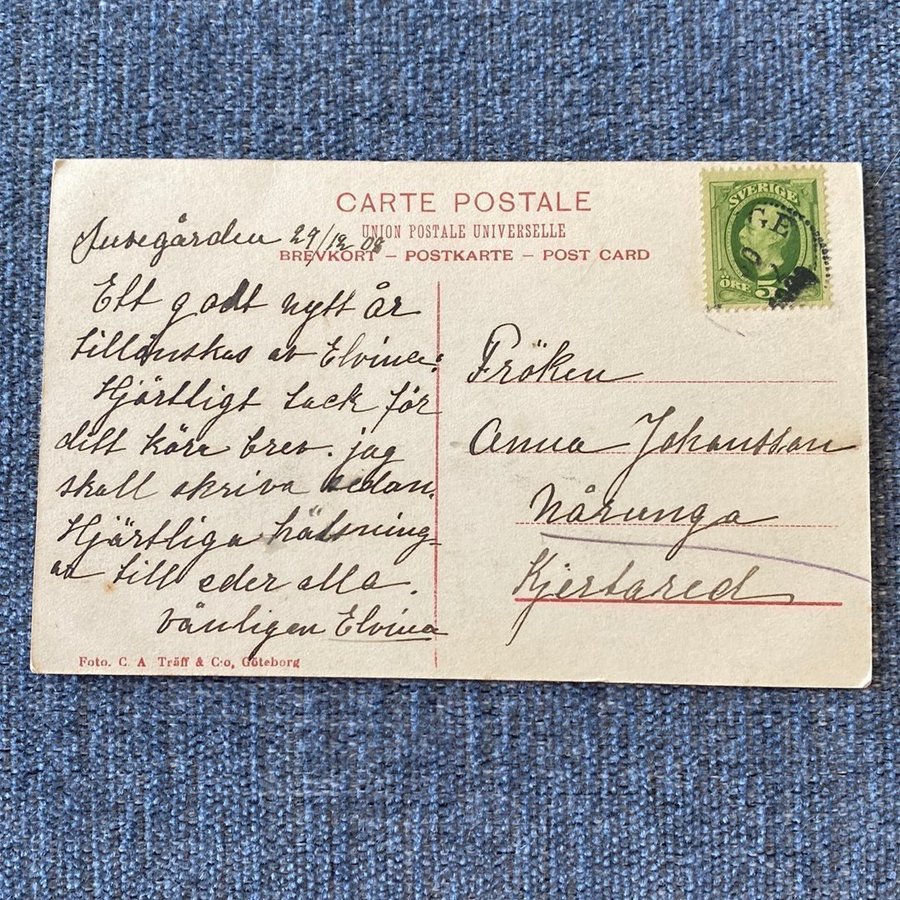 CARTE POSTALE
UNION POSTALE UNIVERSELLE
BREVKORT – POSTKARTE – POST CARD
SVERIGE
5
ÖRE
GE
29/12 08
Ett godt nytt år
tillönskas av Elvina.
Hjärtligt tack för
ditt kära brev. jag
skall skriva sedan.
Hjärtliga hälsning-
ar till eder alla.
vänligen Elvina
Foto. C. A Träff & C:o, Göteborg
Fröken
Anna Johansson
Nårunga
Kjertared